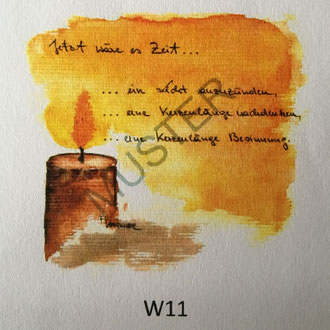 Jetzt wäre es Zeit...
... ein Licht anzuzünden,
... eine Kerzenlänge nachdenken,
... eine Kerzenlänge Besinnung.
MUSTER
W11